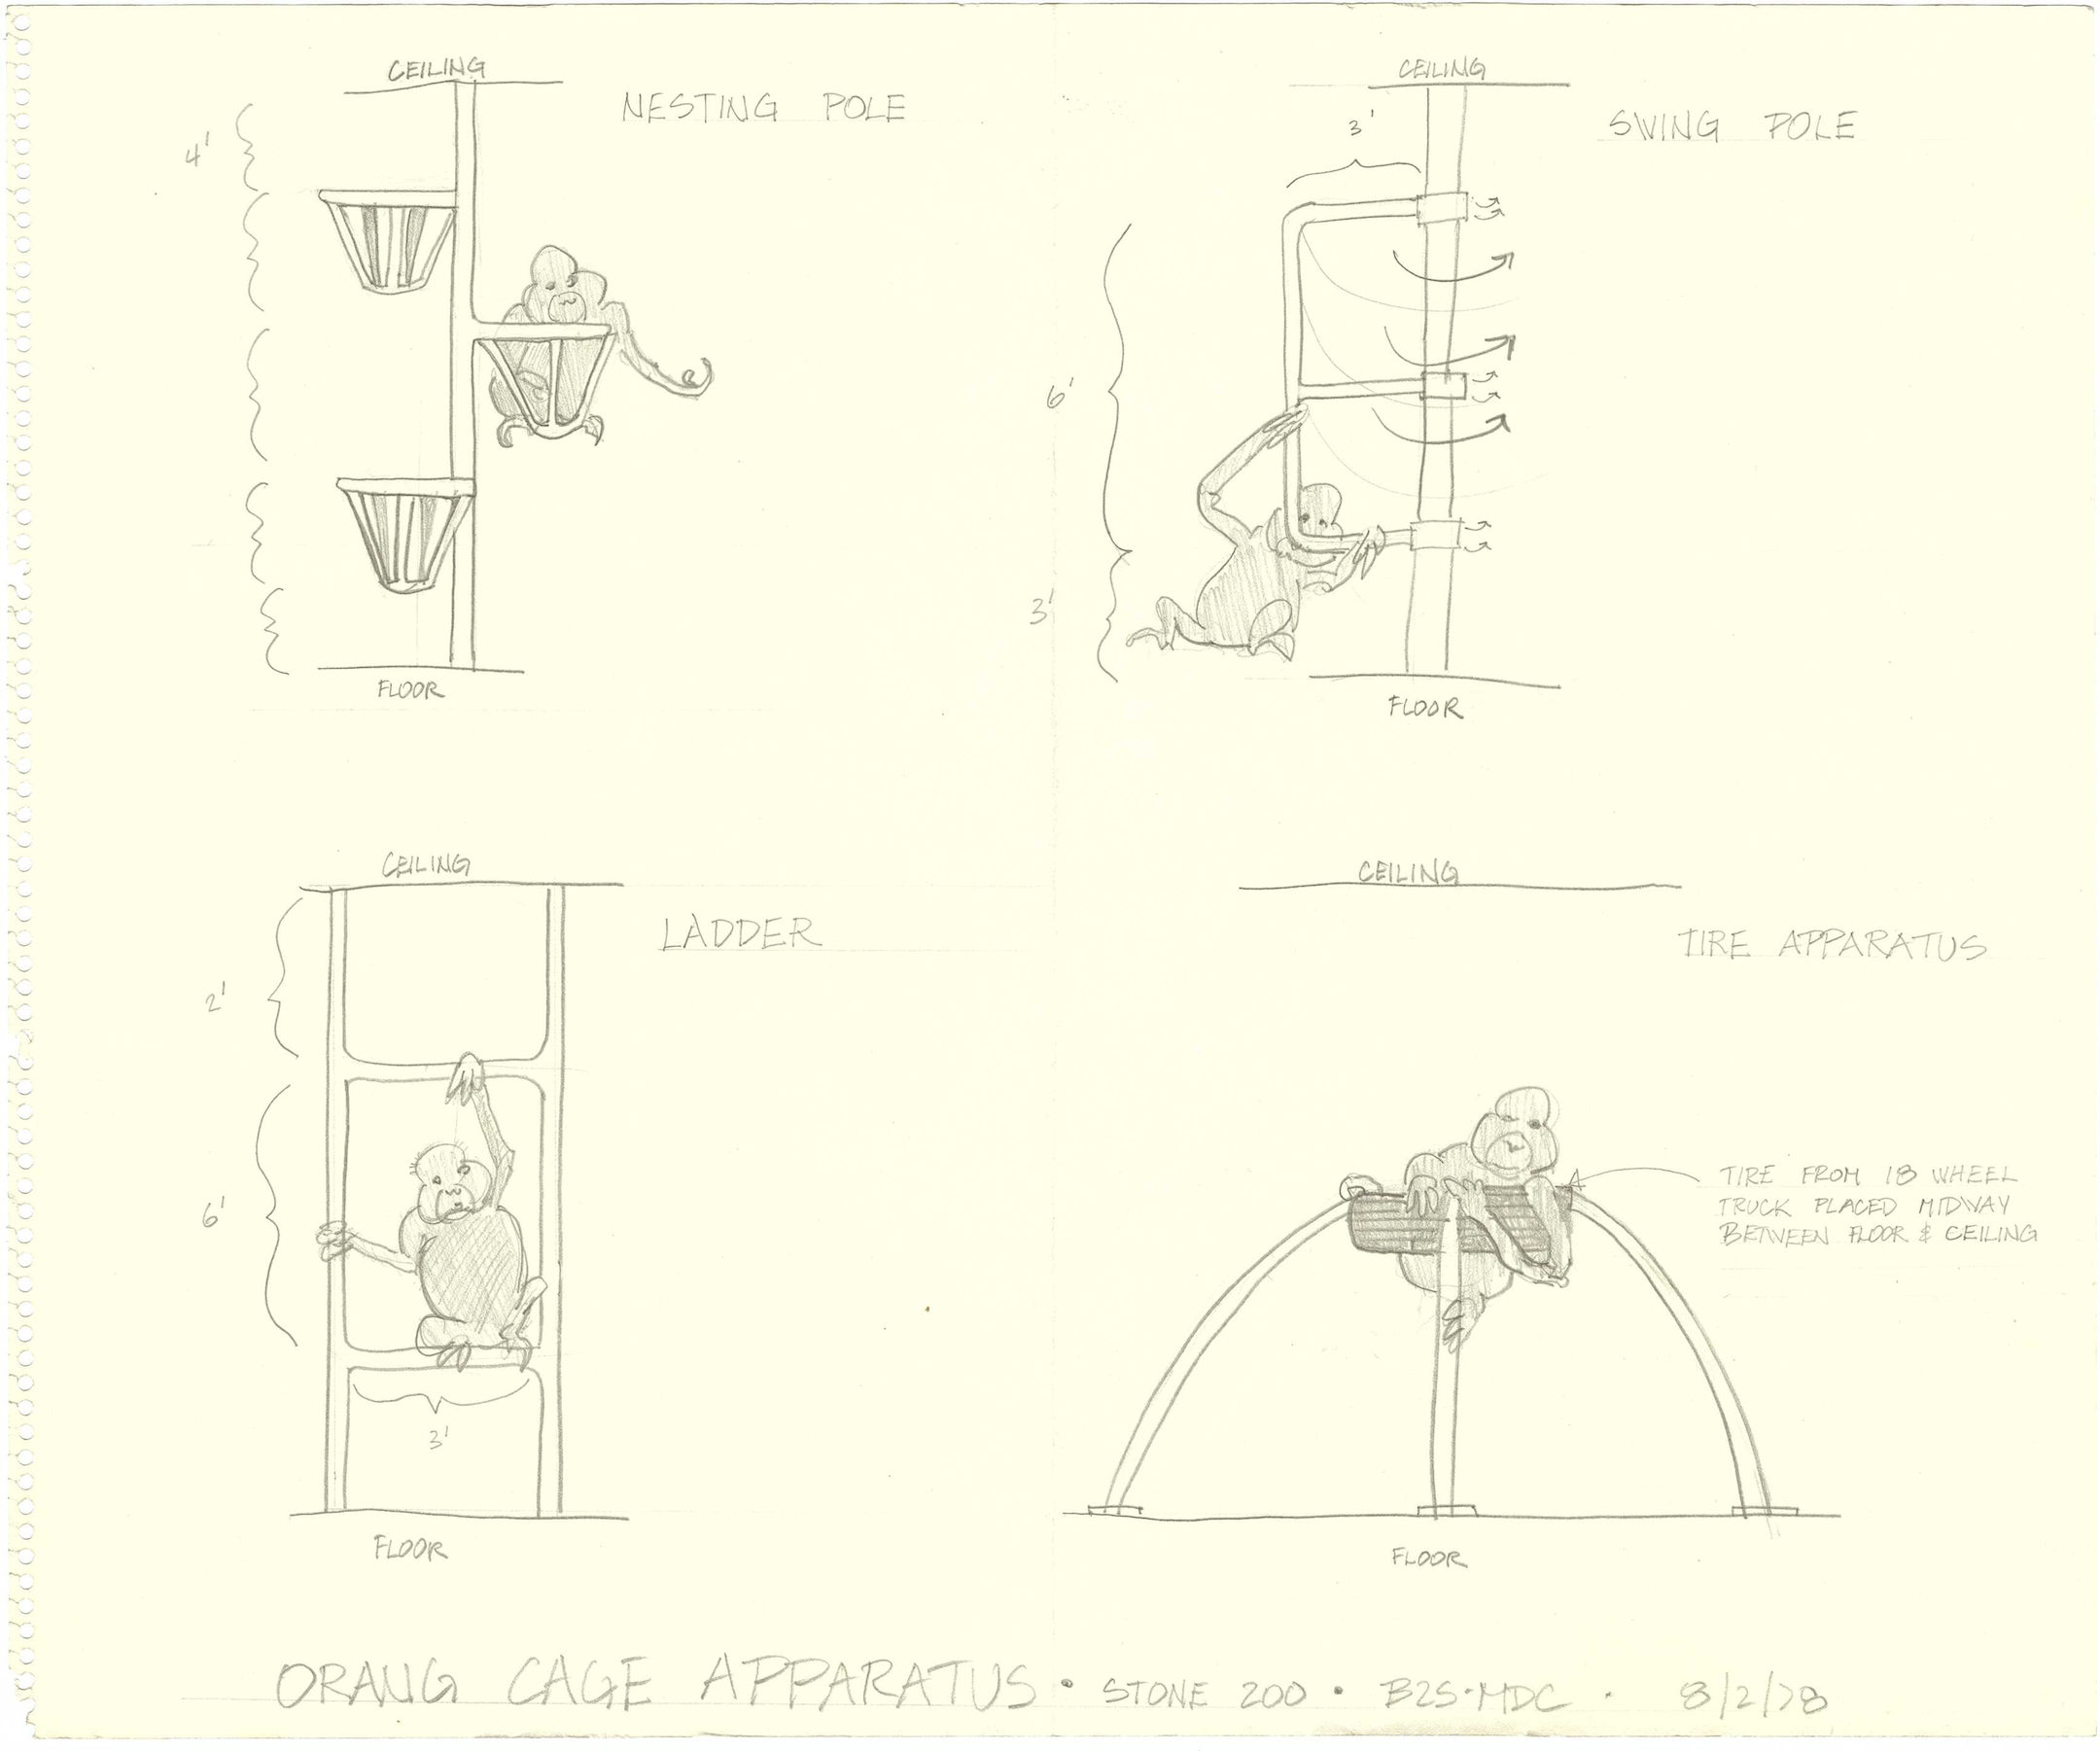 CEILING
NESTING POLE
4'
FLOOR
CEILING
SWING POLE
3'
6'
3'
FLOOR
CEILING
LADDER
2'
6'
3'
FLOOR
CEILING
TIRE APPARATUS
TIRE FROM 18 WHEEL
TRUCK PLACED MIDWAY
BETWEEN FLOOR & CEILING
FLOOR
ORANG CAGE APPARATUS • STONE 200 • B2S•MDC • 8/2/78